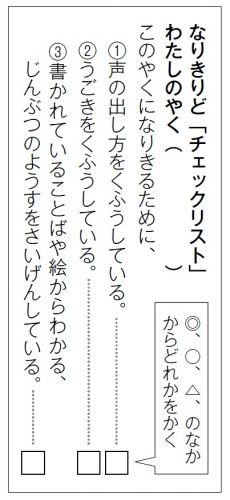 なりきりど「チェックリスト」
わたしのやく（　　　　　　）
このやくになりきるために、
①声の出し方をくふうしている。
②うごきをくふうしている。
③書かれていることばや絵からわかる、
じんぶつのようすをさいげんしている。
◎、○、△、のなか
からどれかをかく